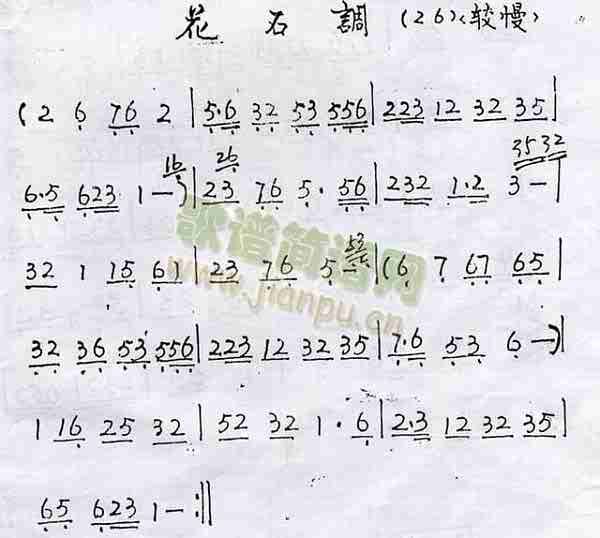 花石調 (26)<较慢>
(2 6 76 2 | 5·6 32 53 556 | 223 12 32 35 |
16 26 35 32
6·5 623 1 —) | 23 76 5· 56 | 232 1·2 3 — |
53
32 1 15 61 | 23 76 5 — | (6 7 67 65 |
32 36 53 556 | 223 12 32 35 | 7·6 53 6 —) |
1 16 25 32 | 52 32 1· 6 | 2·3 12 32 35 |
65 623 1 — :||
歌谱简谱网
www.jianpu.cn